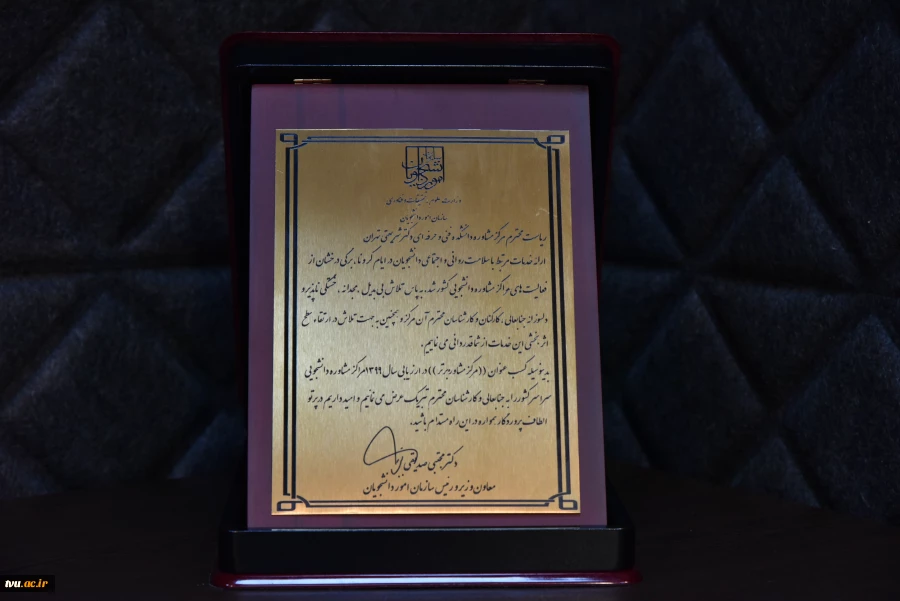 وزارت علوم، تحقیقات و فناوری
سازمان امور دانشجویان
ریاست محترم مرکز مشاوره دانشکده فنی و حرفه ای دکتر شریعتی تهران
ارائه خدمات مرتبط با سلامت روانی و اجتماعی دانشجویان در ایام کرونا، برگی درخشان از
فعالیت های مراکز مشاوره دانشجویی کشور شد. به پاس تلاش بی بدیل، مجدانه، خستگی ناپذیر و
دلسوزانه جنابعالی، کارکنان و کارشناسان محترم آن مرکز و همچنین به جهت تلاش در ارتقاء سطح
اثربخشی این خدمات از شما قدردانی می نماییم.
بدینوسیله کسب عنوان ((مرکز مشاوره برتر)) در ارزیابی سال ۱۳۹۹ مراکز مشاوره دانشجویی
سراسر کشور را به جنابعالی و کارشناسان محترم تبریک عرض می نمائیم و امید داریم در پرتو
الطاف پروردگار همواره در این راه مستدام باشید.
دکتر مجتبی صدیقی
معاون وزیر و رئیس سازمان امور دانشجویان
tvu.ac.ir